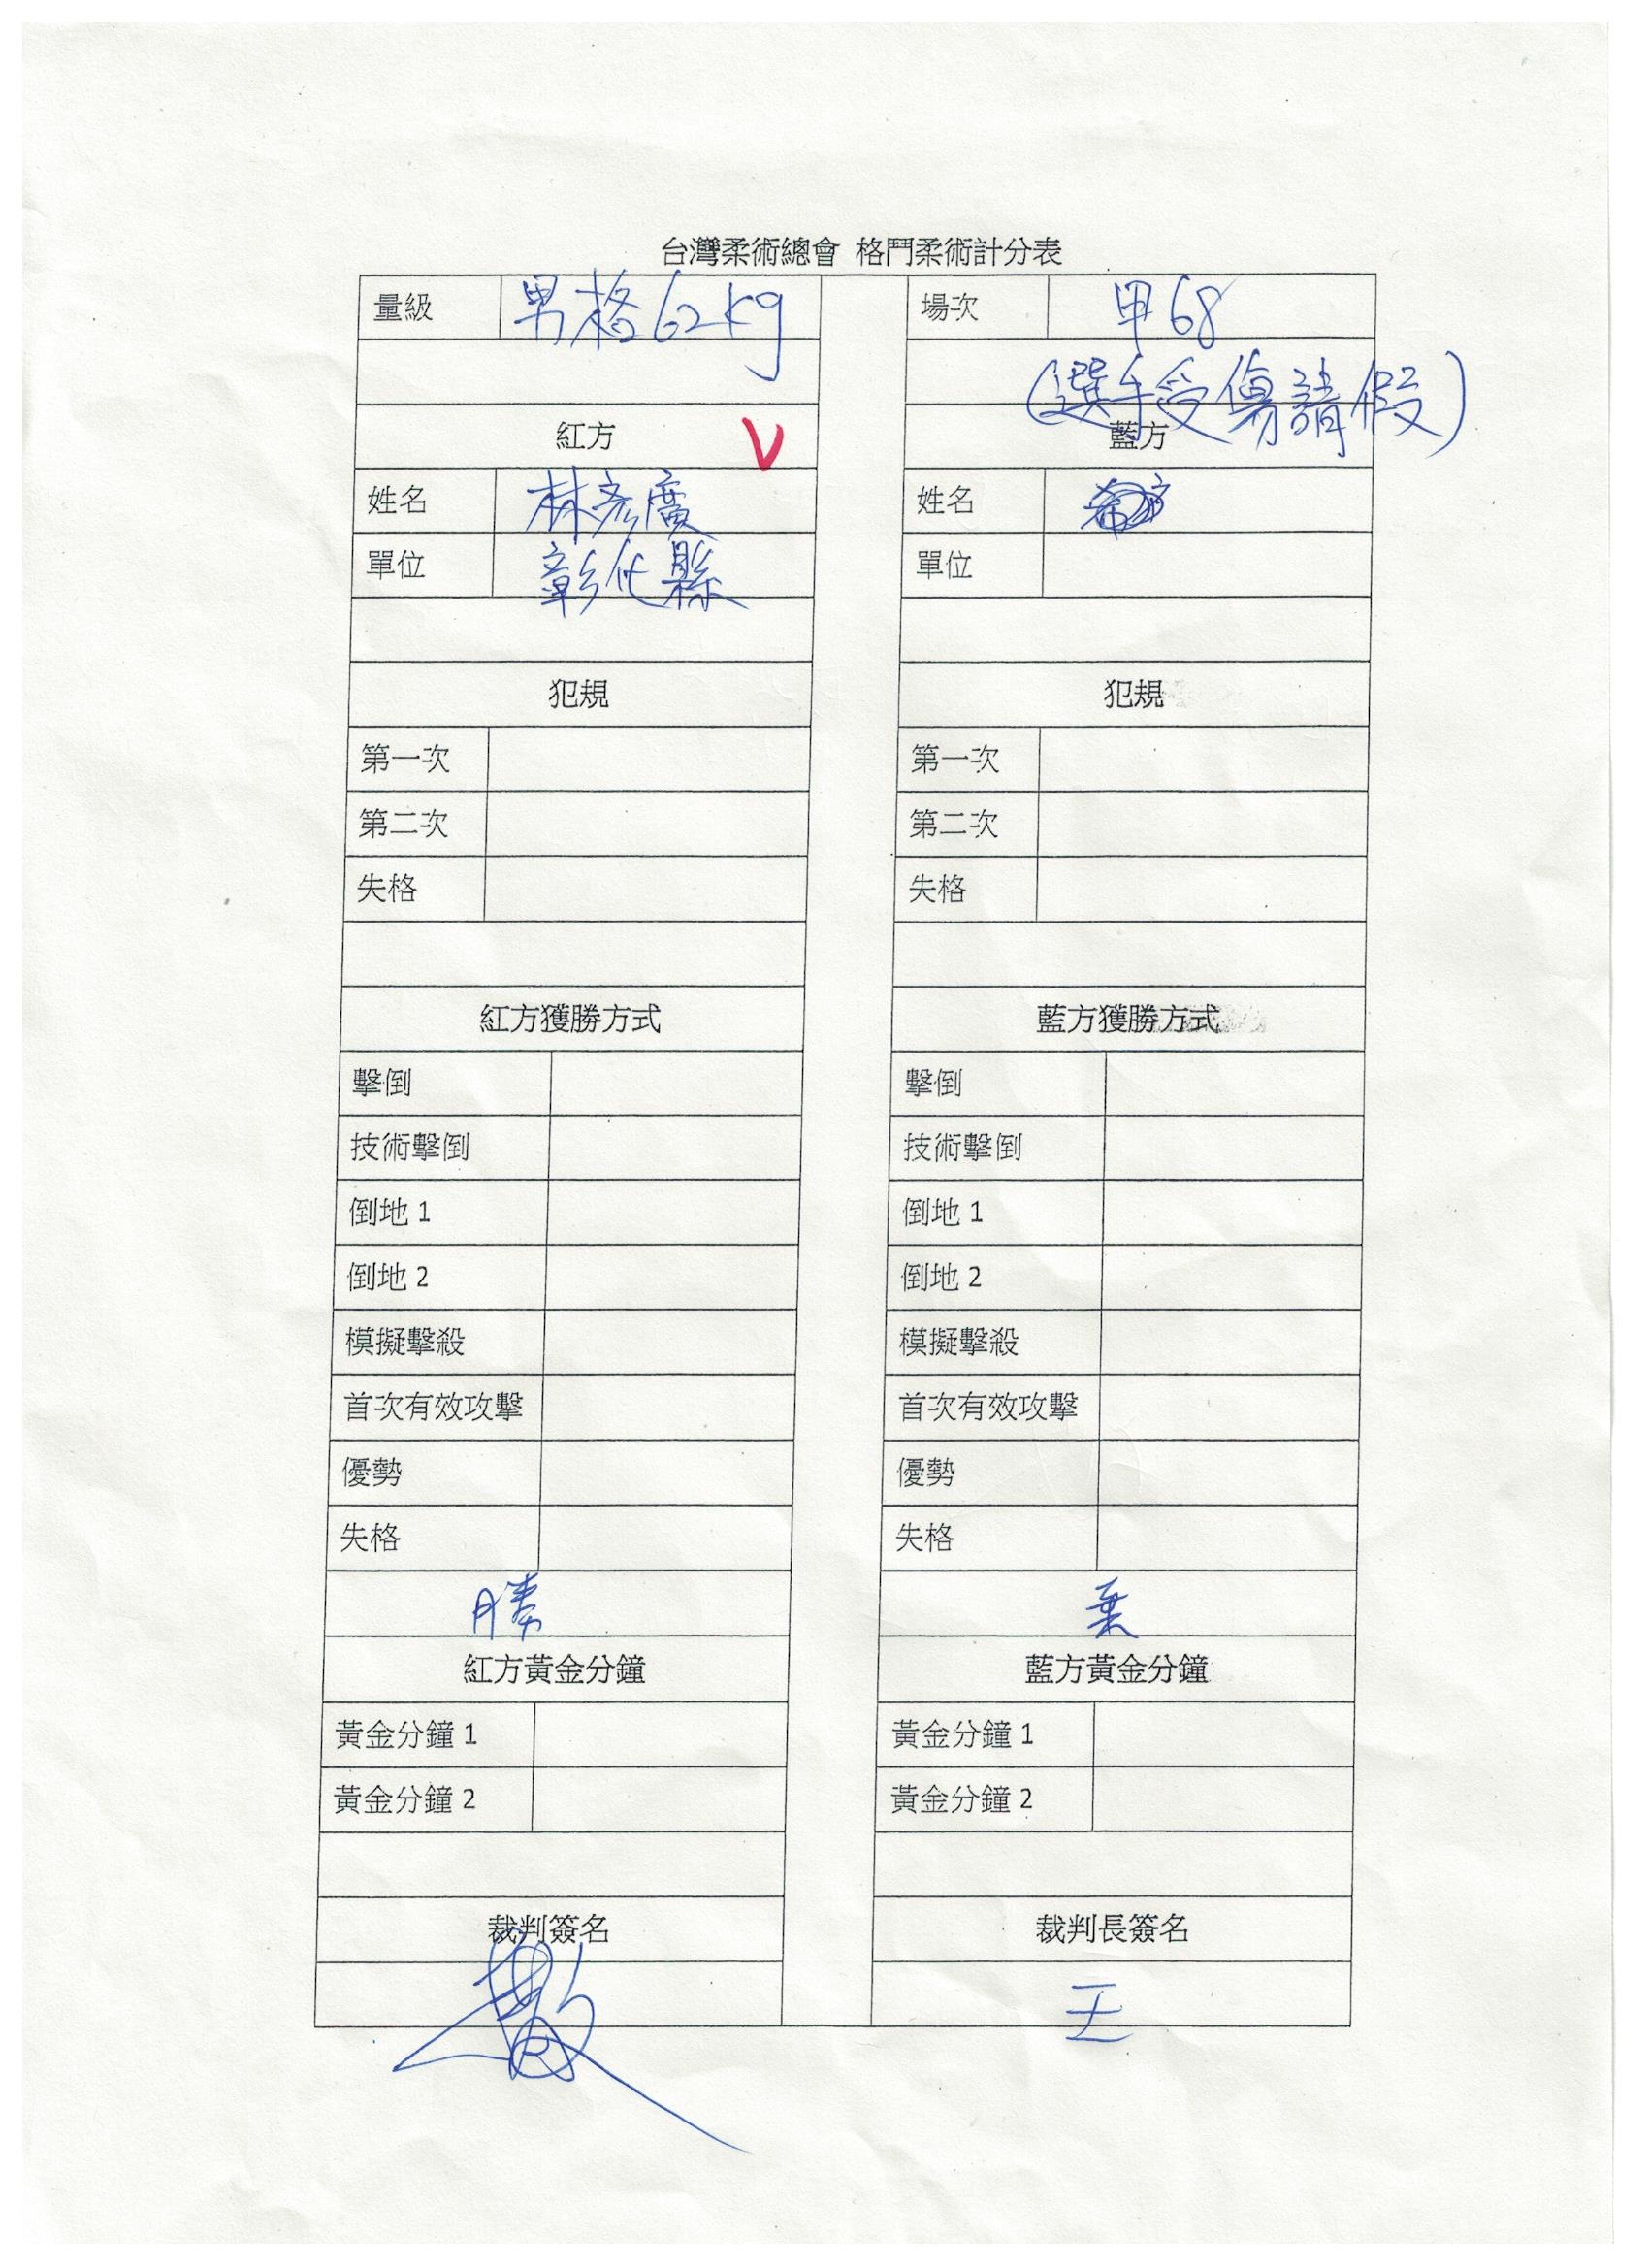 台灣柔術總會 格鬥柔術計分表
量級 男格62kg 場次 甲68
(選手受傷請假)
紅方 V 藍方
姓名 林彥廣 姓名
單位 彰化縣 單位
犯規 犯規
第一次 第一次
第二次 第二次
失格 失格
紅方獲勝方式 藍方獲勝方式
擊倒 擊倒
技術擊倒 技術擊倒
倒地 1 倒地 1
倒地 2 倒地 2
模擬擊殺 模擬擊殺
首次有效攻擊 首次有效攻擊
優勢 優勢
失格 失格
勝 棄
紅方黃金分鐘 藍方黃金分鐘
黃金分鐘 1 黃金分鐘 1
黃金分鐘 2 黃金分鐘 2
裁判簽名 裁判長簽名
王